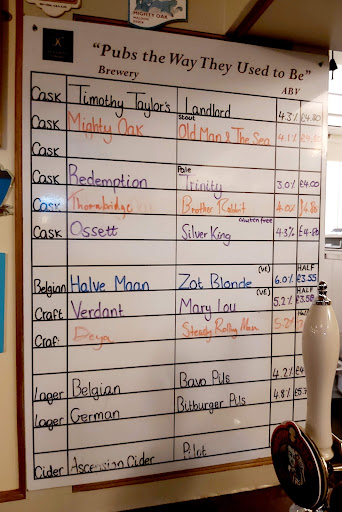 MIGHTY OAK
"Pubs the Way They Used to Be"
Brewery ABV
Cask Timothy Taylor's Landlord 4.3% £4.80
Cask Mighty Oak Stout Old Man & The Sea 4.1%
Cask
Cask Redemption Pale Trinity 3.0% £4.00
Cask Thornbridge Brother Rabbit 4.0%
Cask Ossett Gluten free Silver King 4.3% £4.80
Belgian Halve Maan Zot Blonde (VE) 6.0% HALF £3.55
Craft Verdant Mary Lou (VE) 5.2% HALF £3.50
Craf Deya Steady Rolling Man 5.2%
Lager Belgian Bavo Pils 4.2%
Lager German Bitburger Pils 4.8%
Cider Ascension Cider Pilot